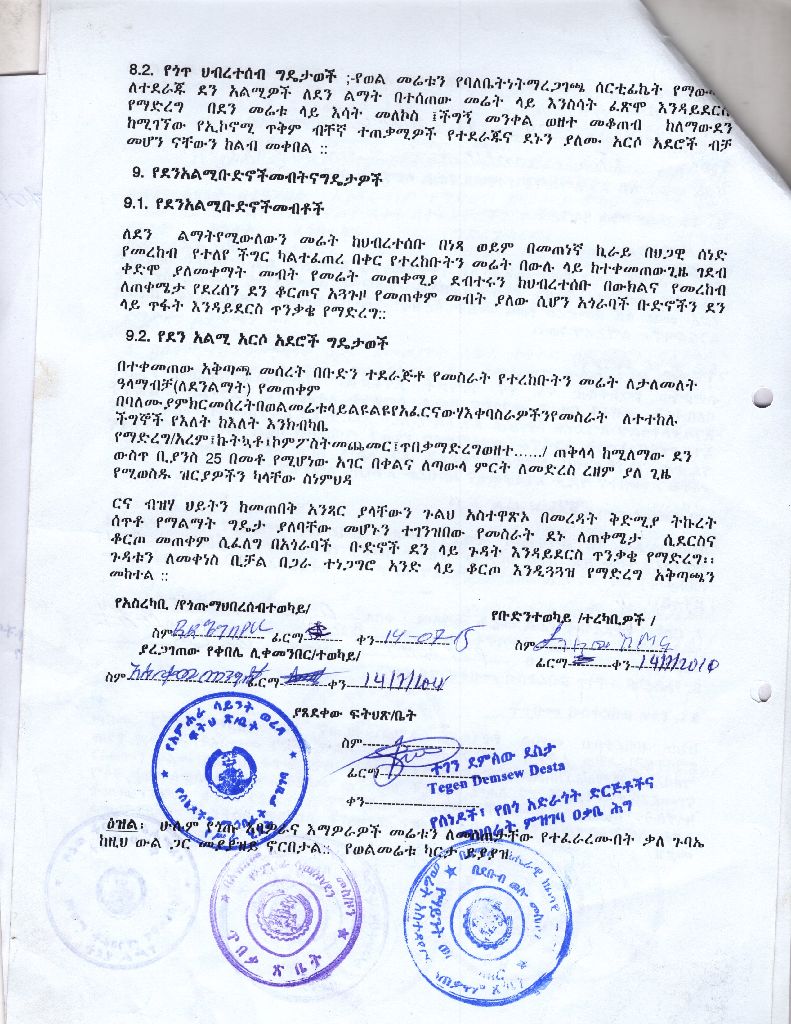 8.2. የጎጥ ህብረተሰብ ግዴታወች ;-የወል መሬቱን የባለቤትነትማረጋገጫ ሰርቲፊኬት የማው
ለተደራጁ ደን አልሚዎች ለደን ልማት በተሰጠው መሬት ላይ እንስሳት ፈጽሞ እንዳይደርስ
የማድረግ በደን መሬቱ ላይ እሳት መለኮስ ፤ችግኝ መንቀል ወዘተ መቆጠብ ከለማውደን
ከሚገኘው የኢኮኖሚ ጥቅም ብቸኛ ተጠቃሚዎች የተደራጁና ደኑን ያለሙ አርሶ አደሮች ብቻ
መሆን ናቸውን ከልብ መቀበል ::
9. የደንአልሚቡድኖችመብትናግዴታዎች
9.1. የደንአልሚቡድኖችመብቶች
ለደን ልማትየሚውለውን መሬት ከህብረተሰቡ በነጻ ወይም በመጠነኛ ኪራይ በህጋዊ ሰነድ
የመረከብ የተለየ ችግር ካልተፈጠረ በቀር የተረከቡትን መሬት በውሉ ላይ ከተቀመጠውጊዜ ገደብ
ቀድሞ ያለመቀማት መብት የመሬት መጠቀሚያ ደብተሩን ከህብረተሰቡ በውክልና የመረከብ
ለጠቀሜታ የደረሰን ደን ቆርጦና አጓጉዞ የመጠቀም መብት ያለው ሲሆን አጎራባች ቡድኖችን ደን
ላይ ጥፋት እንዳይደርስ ጥንቃቄ የማድረግ::
9.2. የደን አልሚ አርሶ አደሮች ግዴታወች
በተቀመጠው አቅጣጫ መሰረት በቡድን ተደራጅቶ የመስራት የተረከቡትን መሬት ለታለመለት
ዓላማብቻ(ለደንልማት) የመጠቀም
በባለሙያምክርመሰረትበወልመሬቱላይልዩልዩየአፈርናውሃእቀባስራዎችንየመስራት ለተተከሉ
ችግኞች የእለት ከእለት እንክብካቤ
የማድረግ/አረም፤ኩትኳቶ፤ኮምፖስትመጨመር፤ጥበቃማድረግወዘተ....../ ጠቅላላ ከሚለማው ደን
ውስጥ ቢያንስ 25 በመቶ የሚሆነው አገር በቀልና ለጣውላ ምርት ለመድረስ ረዘም ያለ ጊዜ
የሚወስዱ ዝርያዎችን ካላቸው ስነምህዳ
ርና ብዝሃ ህይትን ከመጠበቅ አንጻር ያላቸውን ጉልህ አስተዋጽኦ በመረዳት ቅድሚያ ትኩረት
ሰጥቶ የማልማት ግዴታ ያለባቸው መሆኑን ተገንዝበው የመስራት ደኑ ለጠቀሜታ ሲደርስና
ቆርጦ መጠቀም ሲፈለግ በአጎራባች ቡድኖች ደን ላይ ጉዳት እንዳይደርስ ጥንቃቄ የማድረግ፡፡
ጉዳቱን ለመቀነስ ቢቻል በጋራ ተነጋግሮ አንድ ላይ ቆርጦ እንዲጓጓዝ የማድረግ አቅጣጫን
መከተል ::
የአስረካቢ /የጎጡማህበረሰብተወካይ/ የቡድንተወካይ /ተረካቢዎች /
ስም ፊርማ ቀን 14-07- ስም
ያረጋገጠው የቀበሌ ሊቀመንበር/ተወካይ/ ፊርማ ቀን 14/7/2010
ስም ፊርማ ቀን 14/7/
ያጸደቀው ፍትህጽ/ቤት
ስም
ፊርማ ተገን ደምሰው ደስታ
Tegen Demsew Desta
ቀን
የሰነዶች፣ የበጎ አድራጎት ድርጅቶችና
ማህበራት ምዝገባ ዐቃቤ ሕግ
የአምሐራ ሳይንት ወረዳ
ፍትህ ጽ/ቤት
ዕዝል፡ ሁሉም የጎጡ አባዎራና እማዎራዎች መሬቱን የተፈራረሙበት ቃለ ጉባኤ
ከዚህ ውል ጋር መያያዝ ይኖርበታል:: የወልመሬቱ ካርታ ይያያዝ
ጥበቃ ጽ ቤት